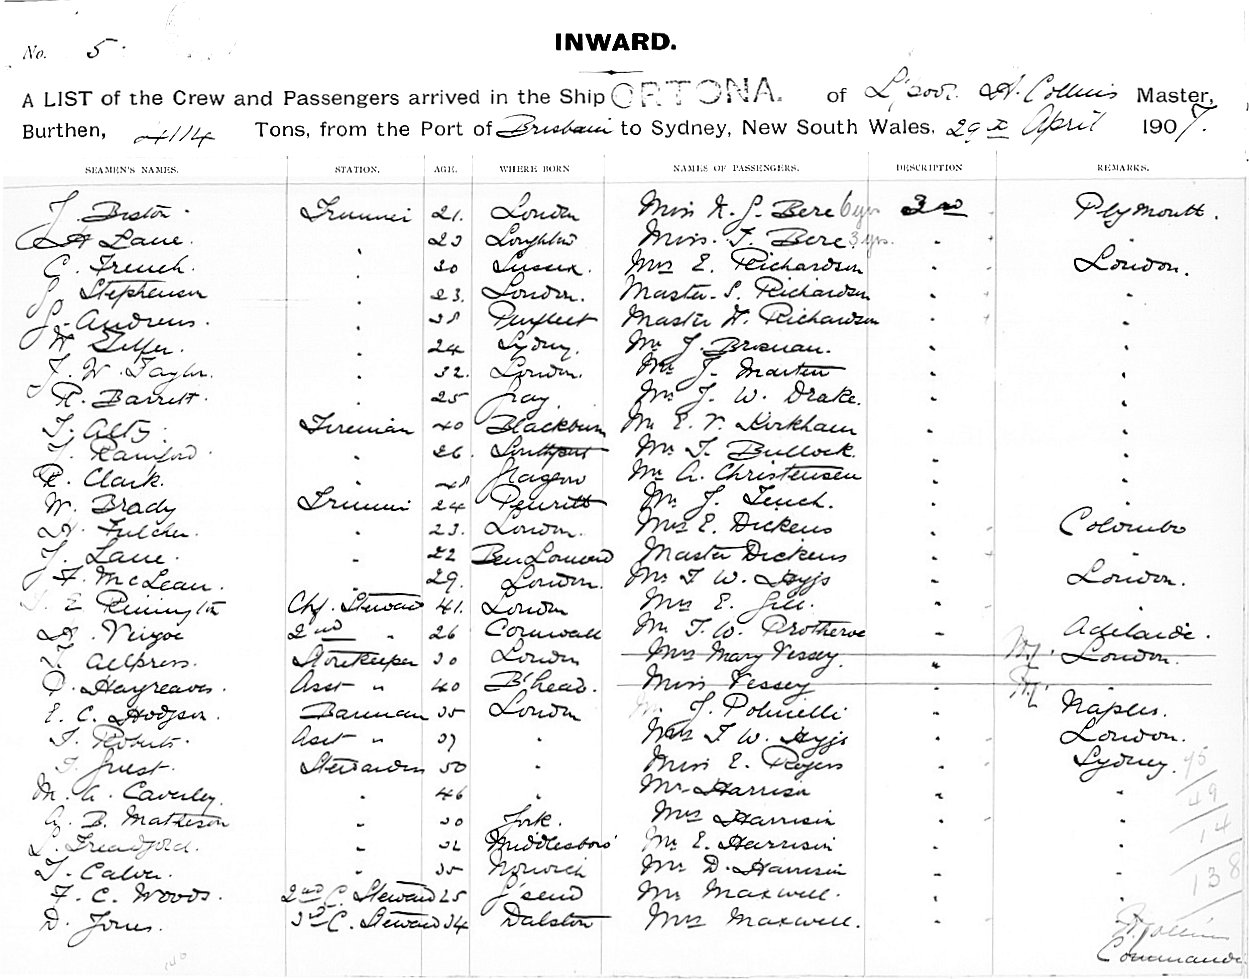 No. 5.
INWARD.
A LIST of the Crew and Passengers arrived in the Ship ORTONA. of L'pool H. Collins Master,
Burthen, 4114 Tons, from the Port of Brisbane to Sydney, New South Wales, 29th April 1907.
SEAMEN'S NAMES. STATION. AGE. WHERE BORN NAMES OF PASSENGERS. DESCRIPTION REMARKS.
J. Trimmer 21. London Miss K. J. Bere 6 yrs 3rd Plymouth.
A Lane. " 23 Miss. J. Bere 3 yrs. "
G. French. " 30 Sussex. Mrs E. Richardson " London.
Stephenson " 23. London. Master. S. Richardson " "
J. Andrews. " 38 Purfleet Master W. Richardson " "
" 24 Sydney. Mr J. Brosnan. " "
J. W. Taylor. " 32. London. Mr J. Martin " "
R. Barrett. " 25 Gray Mr J. W. Drake. " "
T. Alty. Fireman 40 Blackburn Mr E. V. Kirkham " "
J. Rainford. " 26. Southport Mr T. Bullock. " "
R. Clark. " Glasgow Mr A. Christensen " "
W. Brady Trimmer 24 Penrith Mr J. Tench. " "
Fulcher. " 23. London. Mrs E. Dickens " Colombo
J. Lane. " 22 Ben Lomond Master Dickens " "
McLean. " 29. London. Mr T. W. " London.
E Rimington Chf. Steward 41. London Mrs E. Gill. " "
2nd " 26 Cornwall Mr T. W. Protheroe " Adelaide.
Allpress. Storekeeper 30 London Mrs Mary Vessey. " London.
Hargreaves. Asst " 40 B'head. Miss Vessey "
E. C. Hodgson. Barman 35 London J. " Naples.
T. Roberts. Asst " 39 " Mrs T W. " London.
Guest. Stewardess 50 " Miss E. Rogers " Sydney. 75
M. A. Caverley. " 46 " Mr Harrison " 49
B. Matheson " 30 York. Mrs Harrison " 14
" 32 Middlesboro' Mr E. Harrison "
T. Calver. " 35 Norwich Mr D. Harrison " 138
F. C. Woods. 2nd C. Steward 25 G'send Mr Maxwell. "
D. Jones. 3rd C. Steward 34 Dalston Mrs Maxwell. "
H. Collins
Commander